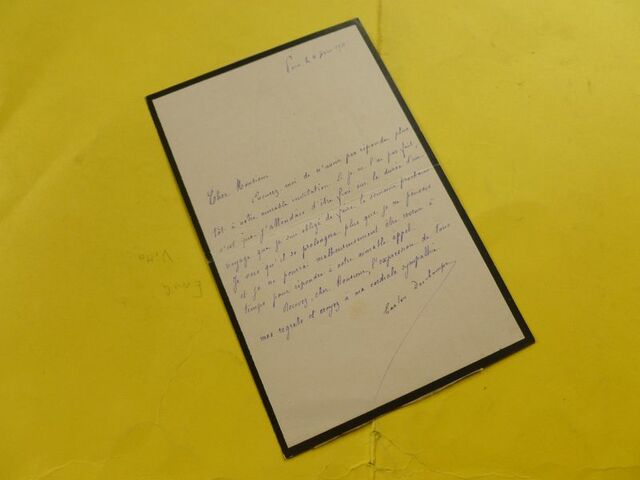 Cher Monsieur
Excusez moi de n'avoir pas répondu plus
tôt à votre aimable invitation. Si je ne l'ai pas fait,
c'est que j'attendais d'être fixé sur la durée d'un
voyage que je suis obligé de faire la semaine prochaine
Je vois qu'il se prolongera plus que je ne pensais
et je ne pourrai malheureusement être revenu à
temps pour répondre à votre aimable appel.
Recevez, cher Monsieur, l'expression de tous
mes regrets et croyez à ma cordiale sympathie
Gaston Deschamps